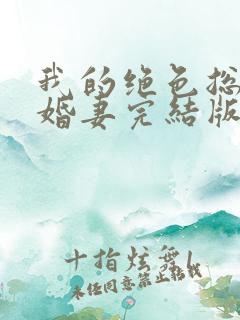 我的绝色总
婚妻完结版
十指炫舞l
未经同意禁止转载